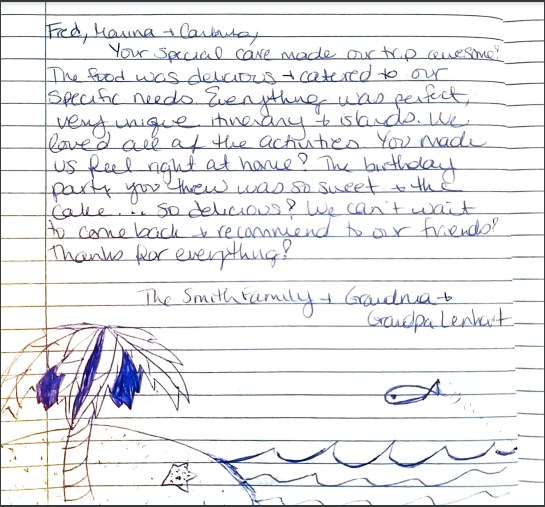 Fred, Marina + Carlotta,
Your special care made our trip awesome!
The food was delicious + catered to our
specific needs. Everything was perfect,
very unique itinerary + islands. We
loved all of the activities. You made
us feel right at home! The birthday
party you threw was so sweet + the
cake... so delicious! We can't wait
to come back + recommend to our friends!
Thanks for everything!
The Smith Family + Grandma +
Grandpa Lenhart